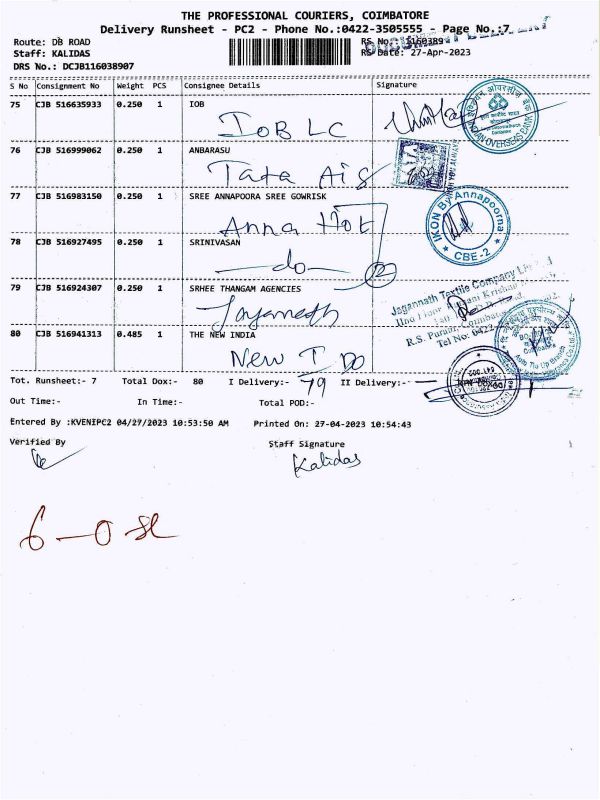 THE PROFESSIONAL COURIERS, COIMBATORE
Delivery Runsheet - PC2 - Phone No.:0422-3505555 - Page No.:7
Route: DB ROAD
RS No.: 1160389
Staff: KALIDAS
RS Date: 27-Apr-2023
DRS No.: DCJB116038907
S No Consignment No Weight PCS Consignee Details Signature
75 CJB 516635933 0.250 1 IOB
IOB LC
INDIAN OVERSEAS BANK
76 CJB 516999062 0.250 1 ANBARASU
Tata Aig
77 CJB 516983150 0.250 1 SREE ANNAPOORA SREE GOWRISK
Anna Hot
IKON By Annapoorna
CBE-2
78 CJB 516927495 0.250 1 SRINIVASAN
—do—
79 CJB 516924307 0.250 1 SRHEE THANGAM AGENCIES
Jagannath Textile Company
R.S. Puram, Coimbatore
Tel No: 0422
80 CJB 516941313 0.485 1 THE NEW INDIA
New I DO
Tot. Runsheet:- 7 Total Dox:- 80 I Delivery:- 79 II Delivery:-
Out Time:- In Time:- Total POD:-
Entered By :KVENIPC2 04/27/2023 10:53:50 AM Printed On: 27-04-2023 10:54:43
Verified By Staff Signature
Kalidas